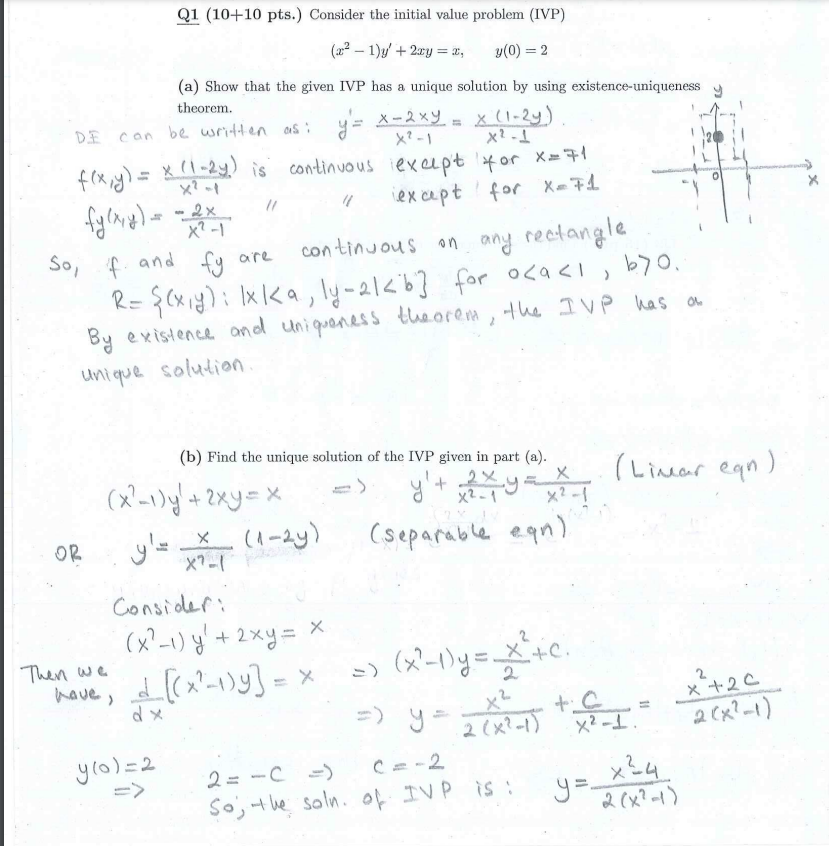 Q1 (10+10 pts.) Consider the initial value problem (IVP)
(x² − 1)y′ + 2xy = x,    y(0) = 2
(a) Show that the given IVP has a unique solution by using existence-uniqueness
theorem.
DE can be written as: y' = (x-2xy)/(x²-1) = x(1-2y)/(x²-1).
f(x,y) = x(1-2y)/(x²-1) is continuous except for x=∓1
fy(x,y) = -2x/(x²-1) " " except for x=∓1
So, f and fy are continuous on any rectangle
R = {(x,y): |x|<a, |y-2|<b} for 0<a<1, b>0.
By existence and uniqueness theorem, the IVP has a
unique solution.
y
2
-1 0
x
(b) Find the unique solution of the IVP given in part (a).
(x²-1)y' + 2xy = x => y' + 2x/(x²-1) y = x/(x²-1) (Linear eqn)
OR y' = x/(x²-1) (1-2y) (separable eqn)
Consider:
(x²-1)y' + 2xy = x
Then we have, d/dx [(x²-1)y] = x => (x²-1)y = x²/2 + c.
=> y = x²/(2(x²-1)) + C/(x²-1) = (x²+2C)/(2(x²-1))
y(0)=2 => 2 = -C => C = -2
So, the soln. of IVP is: y = (x²-4)/(2(x²-1))